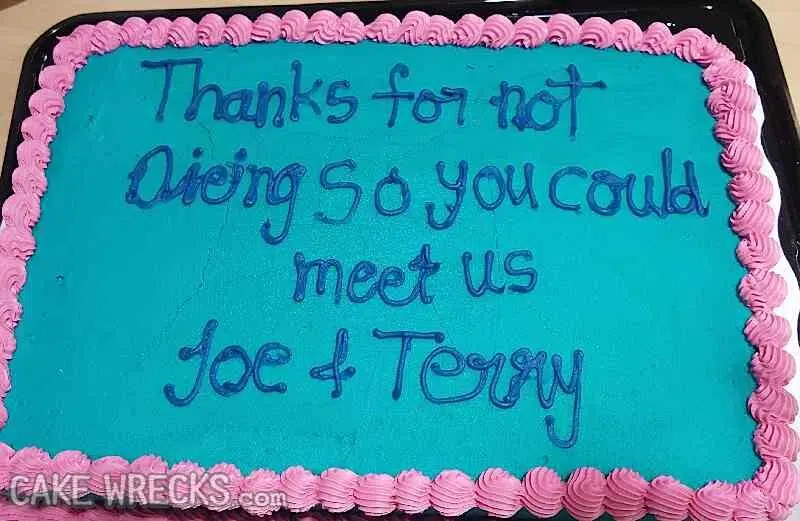 Thanks for not
Dieing So you could
meet us
Joe & Terry
CAKE WRECKS.com